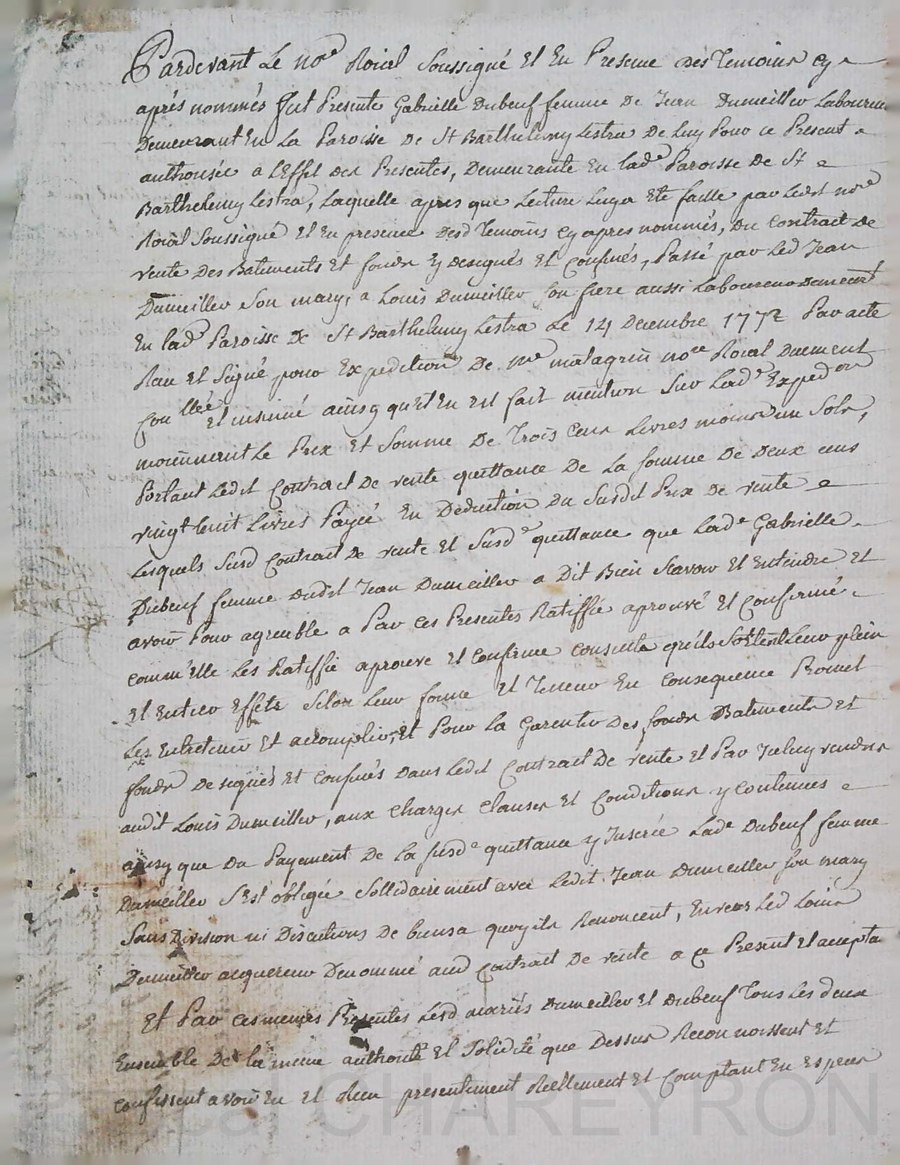 Pardevant Le no.re Roial Soussigné Et En Presence des Temoins cy
aprés nommés fut Presente Gabrielle Dubeuf femme De Jean Dumeiller Laboureur
Demeurant En La Paroisse De St Barthelemy Lestra De Luy Pour ce Present
authorisée a L'Effet des Presentes, Demeurante En lad.e Paroisse De St
Barthelemy Lestra, Laquelle apres que Lecture Luy a Eté faitte par Ledit no.re
Roial Soussigné Et En presence desd Temoins cy apres nommés, du Contract de
vente Des Batiments Et fonds y Designés Et Confinés, Passé par Led Jean
Dumeiller Son mary, a Louis Dumeiller Son frere aussi Laboureur Demeurant
En lad.e Paroisse De St Barthelemy Lestra Le 14 Decembre 1772 Par acte
Recu Et Signé pour Expedition De m.e malagrin no.re Roial Duement
Conllée Et insinué ainsy qu'il En Est fait mention Sur Lad.e Expedon
moiennant Le Prix Et Somme De Trois Cens Livres moins un Sols,
Portant Ledit Contract De vente quittance De La Somme De Deux cens
vingt huit Livres Payée En Déduction Du Susdit Prix De vente
Lesquels Susd Contract De vente Et Susd.e quittance que Lad.e Gabrielle
Dubeuf femme Dudit Jean Dumeiller a Dit Bien Scavoir Et Entendre Et
avoir Pour agreable a Par ces Presentes Ratiffié aprouvé Et Confirmé
comm'Elle Les Ratiffie aprouve Et Confirme consente qu'ils Sortent Leur plein
Et Entier Effets Selon Leur forme Et Teneur En Consequence Promet
Les Entretenir Et accomplir, Et Pour La Garentie Des fonds Batiments Et
fonds Designés Et Confinés Dans Ledit Contract De vente Et Par Iceluy vendus
audit Louis Dumeiller, aux Charges Clauses Et Conditions y Contenues
ainsy que Du Payement De La susd.e quittance y Inserée Lad.e Dubeuf femme
Dumeiller S'Est obligée Sollidairement avec Ledit Jean Dumeiller Son mary
Sans Division ni Discutions De biens a quoy ils Renoncent, Envers Led Louis
Dumeiller acquereur Denommé aud Contract De vente a ce Present Et acceptan
Et Par ces memes Presentes Lesd mariés Dumeiller Et Dubeuf Tous Les deux
Ensemble De la meme authorité Et Solidité que Dessus Reconnoissent Et
Confessent avoir Eu Et Recu presentement Reellement Et Comptant En Especes
CHAREYRON